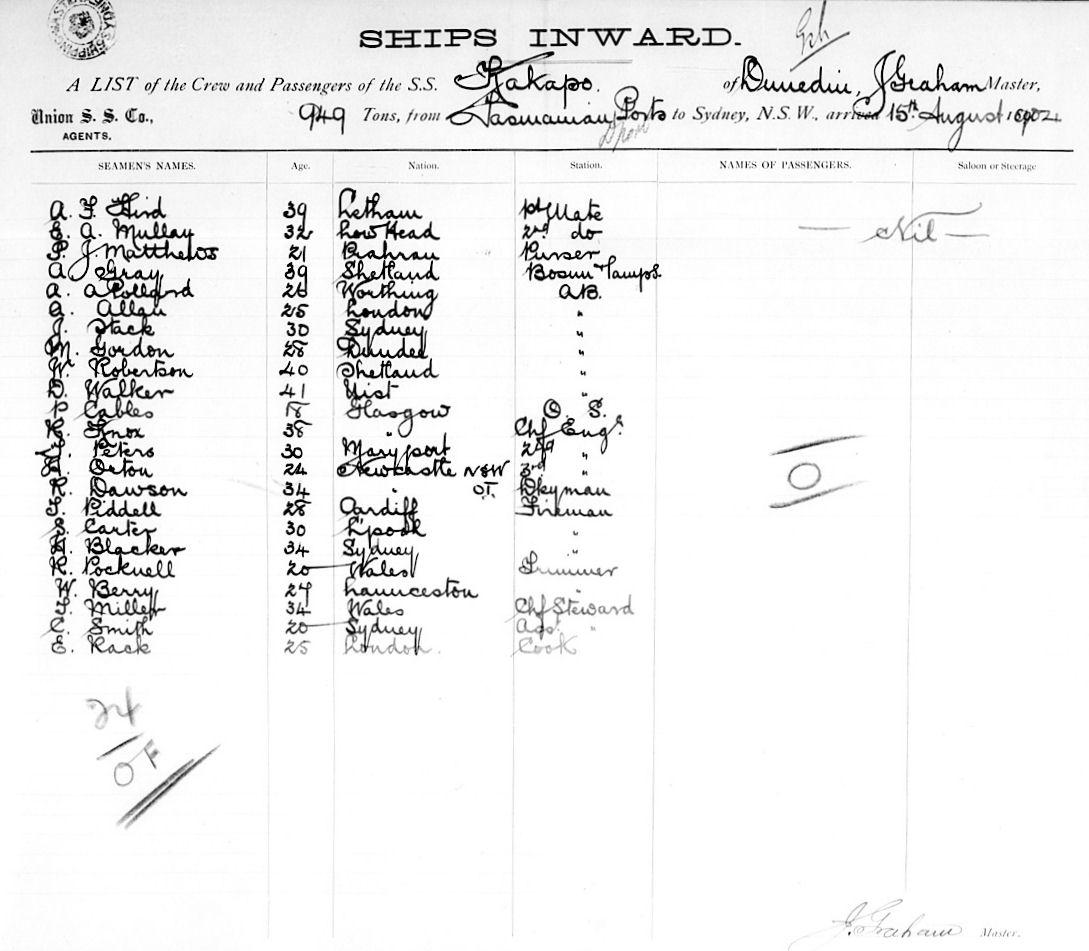 SHIPS INWARD.
A LIST of the Crew and Passengers of the S.S. Kakapo. of Dunedin, J Graham Master,
Union S. S. Co., 949 Tons, from Tasmanian Ports to Sydney, N.S.W., arrived 15th August 1902
AGENTS.
SEAMEN'S NAMES. Age. Nation. Station. NAMES OF PASSENGERS. Saloon or Steerage
A. F. Hird 39 Letham 1st Mate — Nil —
E. A. Mullay 32 Low Head 2nd do
P. J. Matthews 21 Prahran Purser
A. Gray 39 Shetland Bosun & Lamps.
A. A Pollard 26 Worthing A.B.
A. Allan 25 London "
J. Stack 30 Sydney "
M. Gordon 28 Dundee "
W. Robertson 40 Shetland "
D. Walker 41 Uist "
P Cables 18 Glasgow O. S.
R. Knox 38 " Chf Engr.
Peters 30 Maryport 2nd "
Orton 24 Newcastle NSW 3rd "
R. Dawson 34 " O.T. Dkyman
T. Piddell 28 Cardiff Fireman
S. Carter 30 L'pool "
H. Blacker 34 Sydney "
R. Pocknell 20 Wales Trimmer
W. Berry 24 Launceston "
T. Miller 34 Wales Chf Steward
C. Smith 20 Sydney Asst "
E. Rack 25 London. Cook
O
24
OF
J. Graham Master.